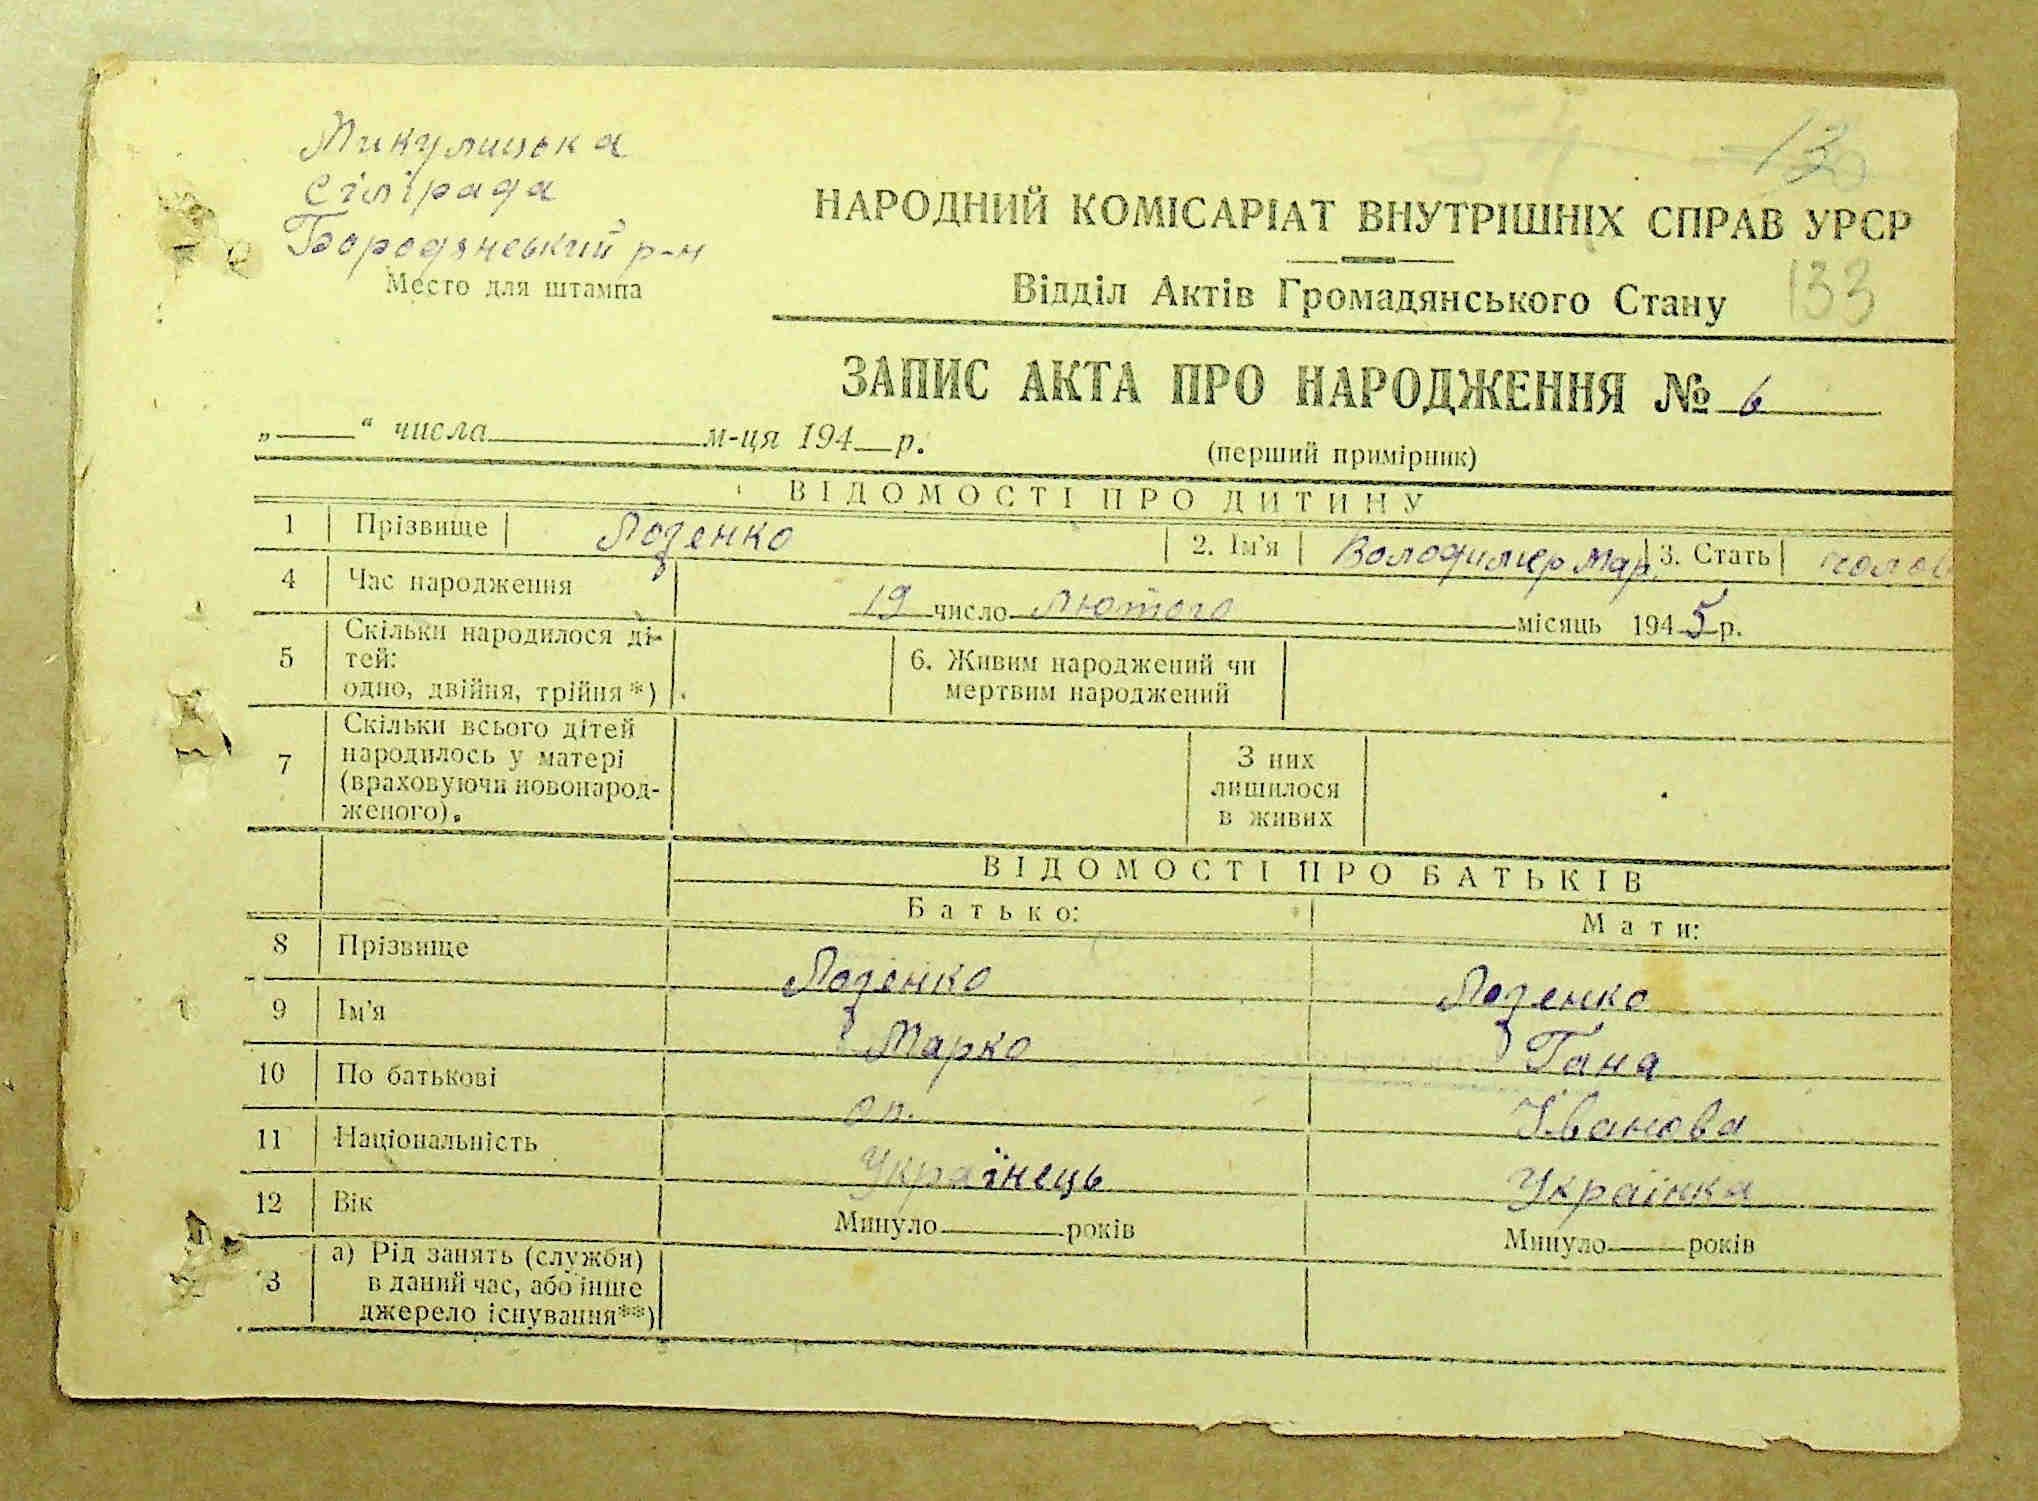 Микулицька
Сілірада
Бородянський р-н
Место для штампа
13
НАРОДНИЙ КОМІСАРІАТ ВНУТРІШНІХ СПРАВ УРСР
Відділ Актів Громадянського Стану
133
ЗАПИС АКТА ПРО НАРОДЖЕННЯ № 6
„ “ числа м-ця 194 р.
(перший примірник)
ВІДОМОСТІ ПРО ДИТИНУ
1 Прізвище Лозенко 2. Ім'я Володимер Мар. 3. Стать чолов
4 Час народження 19 число лютого місяць 1945 р.
5 Скільки народилося ді-
тей:
одно, двійня, трійня*)
6. Живим народжений чи
мертвим народжений
7 Скільки всього дітей
народилось у матері
(враховуючи новонарод-
женого).
З них
лишилося
в живих
ВІДОМОСТІ ПРО БАТЬКІВ
Батько: Мати:
8 Прізвище Лозенко Лозенко
9 Ім'я Марко Гана
10 По батькові Іванова
11 Національність Українець Українка
12 Вік Минуло років Минуло років
3 а) Рід занять (служби)
в даний час, або інше
джерело існування**)